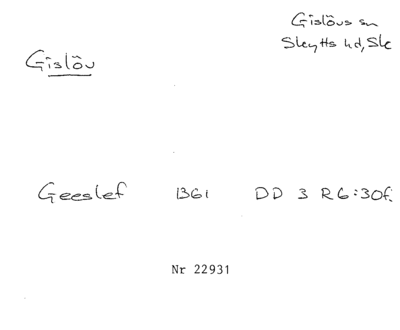 Gislövs sn
Skytts hd, Sk
Gislöv
Geeslef 1361 DD 3 R 6:30f.
Nr 22931